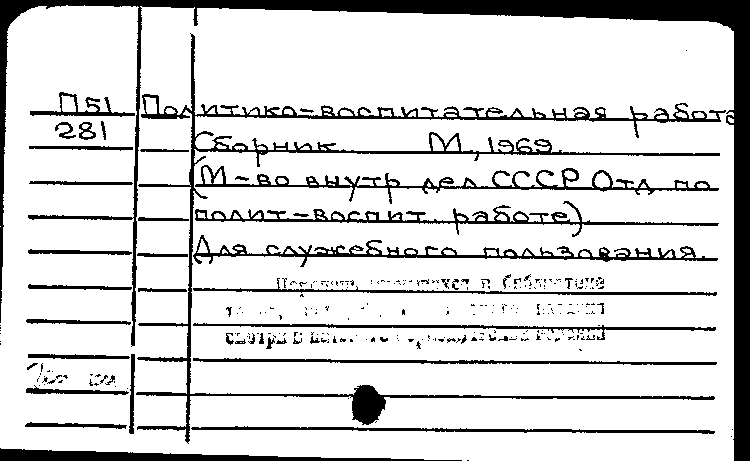 П51 Политико-воспитательная работа
281 Сборник. М., 1969.
(М-во внутр дел СССР Отд по
полит-воспит. работе)
Для служебного пользования.
Перечень имеющихся в библиотеке
смотри в